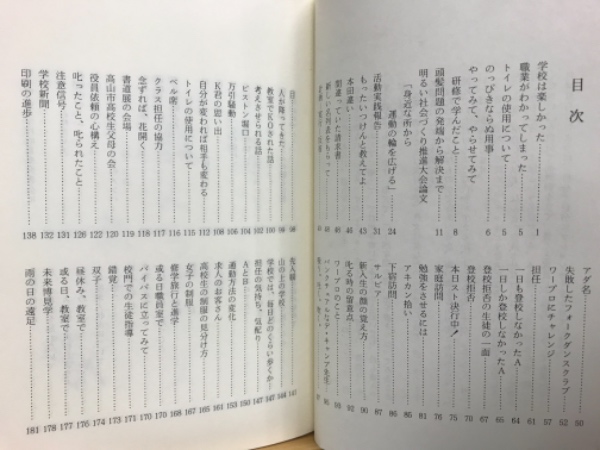 目次
学校は楽しかった……1
職業がわかってしまった……5
トイレの使用について……5
のっぴきならぬ用事……6
やってみて、やらせてみて
研修で学んだこと……8
頭髪問題の発端から解決まで……11
明るい社会づくり推進大会論文
「身近な所から
運動の輪を広げる」……24
活動実践報告……31
もったいつけんと教えてよ
本田違い
間違っていた請求書
新しい名刺道をもらって
アダ名……50
失敗したフォークダンスクラブ……52
ワープロにチャレンジ……57
担任……61
一日しか登校しなかったA……64
一日も登校しなかったA……65
登校拒否の生徒の一面……67
登校拒否……70
本日スト決行中！……75
家庭訪問……76
勉強をさせるには……81
アキカン拾い……85
下宿訪問……86
サルビア……87
新入生の顔の覚え方……90
叱る時の留意点……92
ワープロのこと……95
人が降ってきた
教室でKOされた話
考えさせられる話
ピストン堀口
万引騒動
K君の思い出
自分が変われば相手も変わる……112
トイレの使用について……115
ベル席……116
クラス担任の協力……117
念ずれば、花開く……118
書道展の会場……119
高山市高校生父母の会……120
役員依頼の心構え……122
叱ったこと、叱られたこと……126
注意信号……131
学校新聞……132
印刷の進歩……138
先入観
山の上の学校
学校では、毎日どのくらい歩くか
担任の気持ち、気配り
AとB……150
運動方法の変化……153
求人のお客さん……161
高校生の制服の見分け方……163
女子の制服……167
修学旅行と進学……168
或る日職員室で……170
バイパスに立ってみて……170
校門での生徒指導……171
錯覚……173
双子……174
昼休み、教室で……176
或る日、教室で……177
未来博見学……178
雨の日の遠足……181